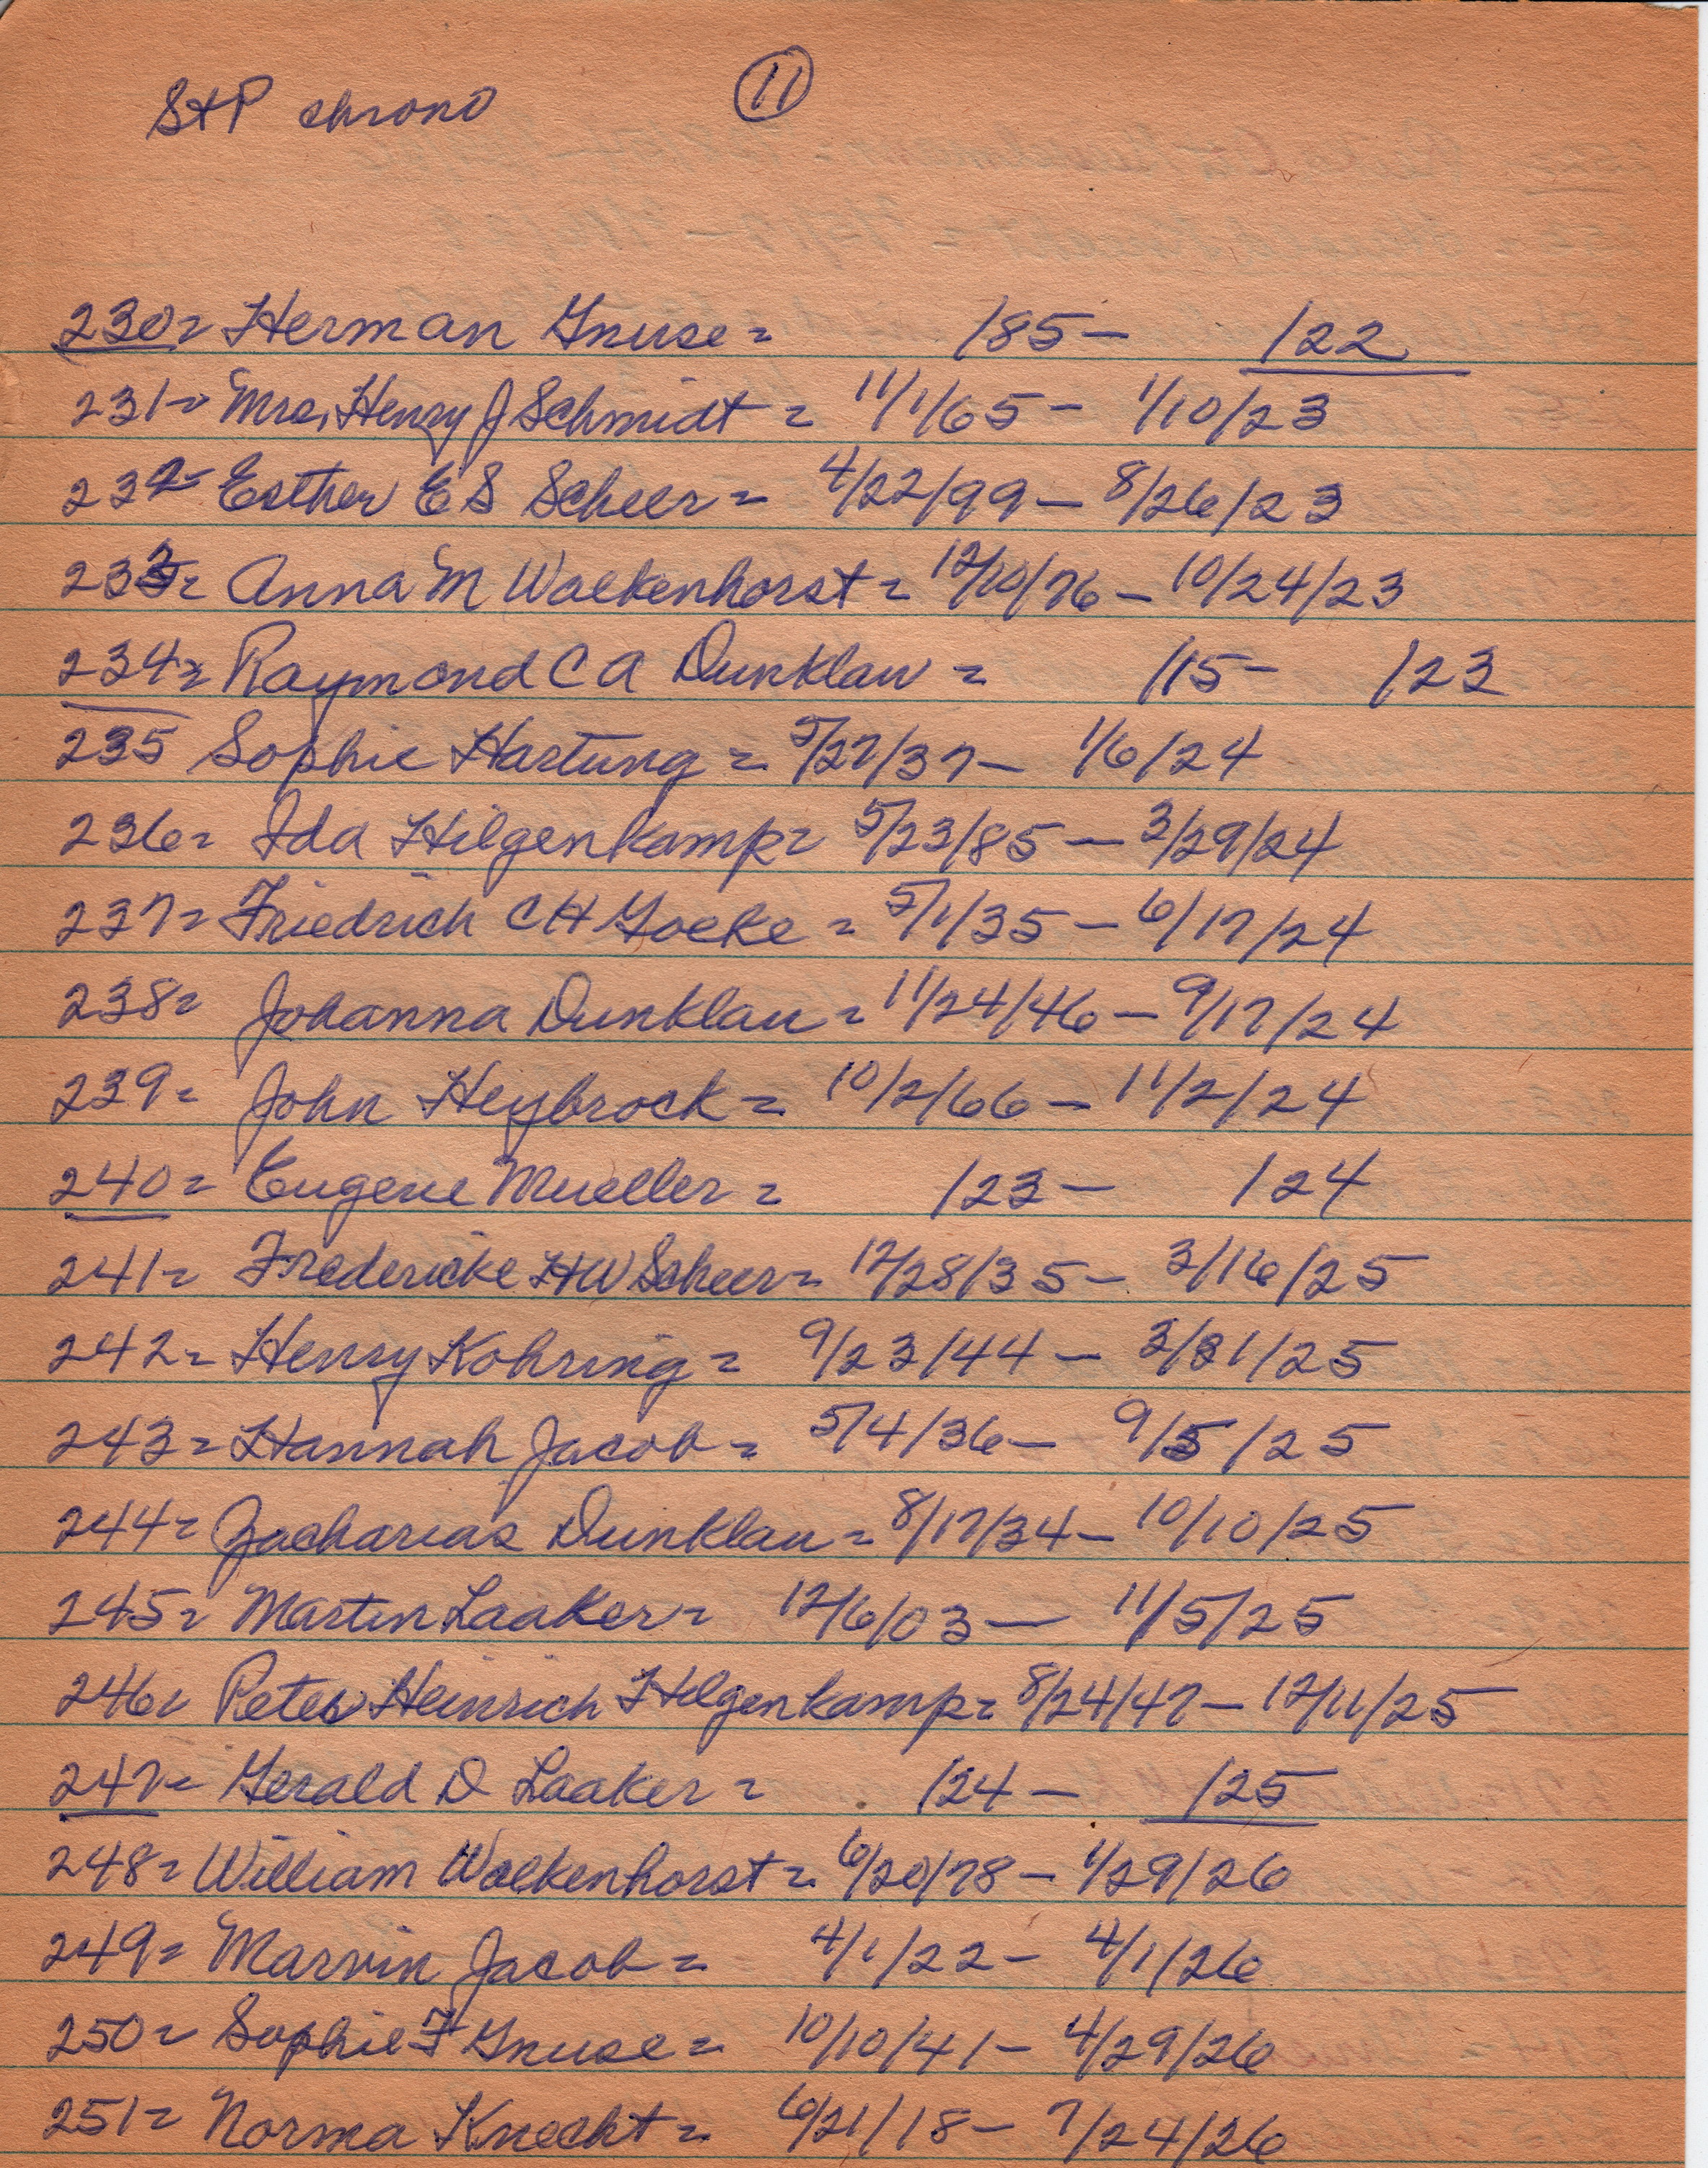 StP chrono (11)
230= Herman Gnuse = /85 - /22
231= Mrs. Henry J Schmidt = 11/1/65 - 1/10/23
232= Esther E S Scheer = 4/22/99 - 8/26/23
233= Anna M Wolkenhorst = 12/10/76 - 10/24/23
234= Raymond C A Dunklau = /15 - /23
235 Sophie Hartung = 5/27/37 - 1/6/24
236= Ida Hilgenkamp = 5/23/85 - 3/29/24
237= Friedrich C H Goeke = 5/1/35 - 6/17/24
238= Johanna Dunklau = 11/24/46 - 9/17/24
239= John Heybrock = 10/2/66 - 11/2/24
240= Eugene Mueller = /23 - /24
241= Fredericke H W Scheer = 12/28/35 - 3/16/25
242= Henry Kohring = 9/23/44 - 3/31/25
243= Hannah Jacob = 5/4/36 - 9/5/25
244= Zacharias Dunklau = 8/17/34 - 10/10/25
245= Martin Laaker = 12/6/03 - 11/5/25
246= Peter Heinrich Hilgenkamp = 8/24/47 - 12/11/25
247= Gerald D Laaker = /24 - /25
248= William Wolkenhorst = 6/20/78 - 1/29/26
249= Marvin Jacob = 4/1/22 - 4/1/26
250= Sophie F Gnuse = 10/10/41 - 4/29/26
251= Norma Knecht = 6/21/18 - 7/24/26